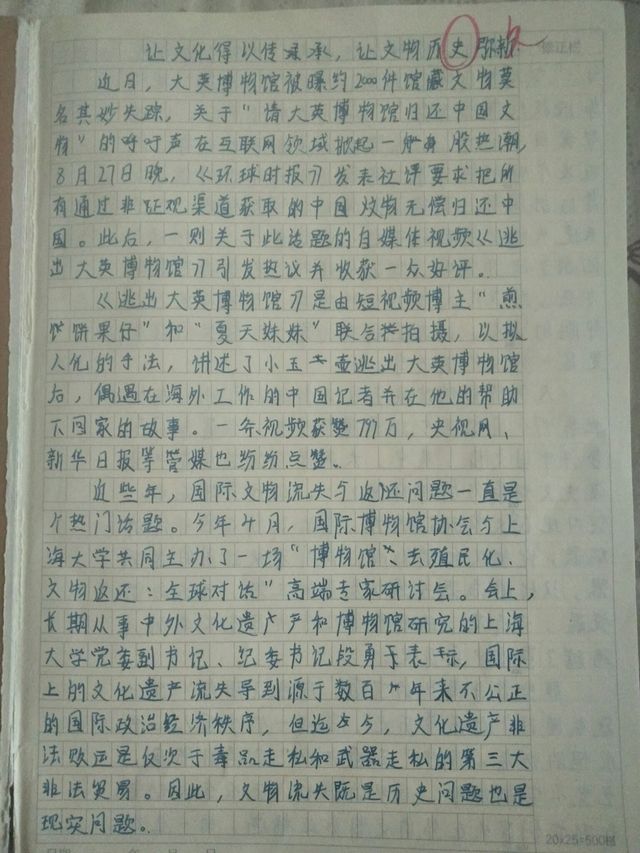 让文化得以传承，让文物历史弥新
近日，大英博物馆被曝约2000件馆藏文物莫
名其妙失踪，关于“请大英博物馆归还中国文
物”的呼吁声在互联网领域掀起一股热潮，
8月27日晚，《环球时报》发表社评要求把所
有通过非正规渠道获取的中国文物无偿归还中
国。此后，一则关于此话题的自媒体视频《逃
出大英博物馆》引发热议并收获一众好评。
《逃出大英博物馆》是由短视频博主“煎
饼果仔”和“夏天妹妹”联合拍摄，以拟
人化的手法，讲述了小玉壶逃出大英博物馆
后，偶遇在海外工作的中国记者并在他的帮助
下回家的故事。一条视频获赞791万，央视网、
新华日报等官媒也纷纷点赞。
近些年，国际文物流失与返还问题一直是
个热门话题。今年4月，国际博物馆协会与上
海大学共同主办了一场“博物馆、去殖民化、
文物返还：全球对话”高端专家研讨会。会上，
长期从事中外文化遗产和博物馆研究的上海
大学党委副书记、纪委书记段勇表示，国际
上的文化遗产流失导到源于数百年来不公正
的国际政治经济秩序，但迄今，文化遗产非
法贩运是仅次于毒品走私和武器走私的第三大
非法贸易。因此，文物流失既是历史问题也是
现实问题。
20x25=500